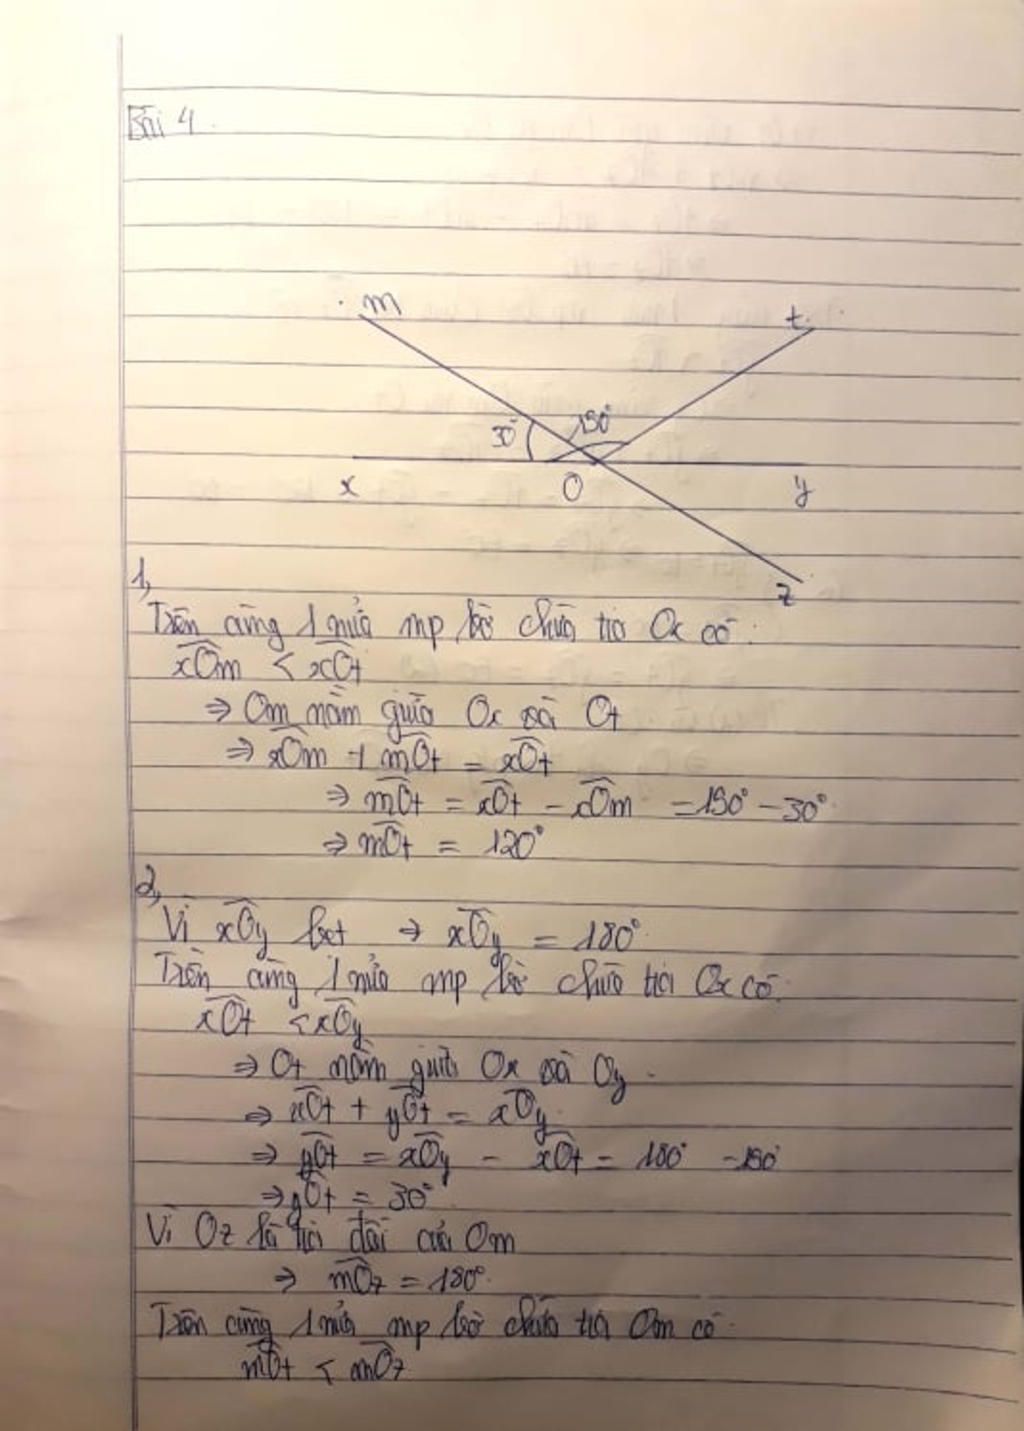 Bài 4.
m
t
30°
150°
x
O
y
z
1,
Trên cùng 1 nửa mp bờ chứa tia Ox có:
xOm < xOt
⇒ Om nằm giữa Ox và Ot
⇒ xOm + mOt = xOt
⇒ mOt = xOt - xOm = 150° - 30°
⇒ mOt = 120°
2,
Vì xOy bẹt ⇒ xOy = 180°
Trên cùng 1 nửa mp bờ chứa tia Ox có:
xOt < xOy
⇒ Ot nằm giữa Ox và Oy.
⇒ xOt + yOt = xOy
⇒ yOt = xOy - xOt = 180° - 150°
⇒ yOt = 30°
Vì Oz là tia đối của Om
⇒ mOz = 180°
Trên cùng 1 nửa mp bờ chứa tia Om có
mOt < mOz